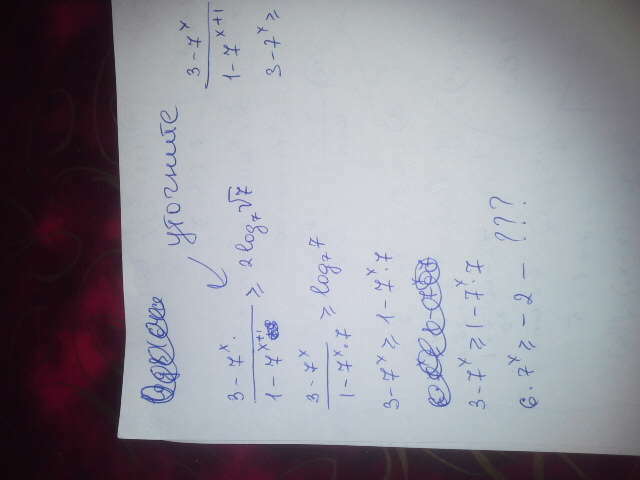 уточните
(3-7^x)/(1-7^(x+1)) ≥ 2log₇√7
(3-7^x)/(1-7^x·7) ≥ log₇7
3-7^x ≥ 1-7^x·7
3-7^x ≥ 1-7^x·7
6·7^x ≥ -2 - ???
(3-7^x)/(1-7^(x+1))
3-7^x ≥